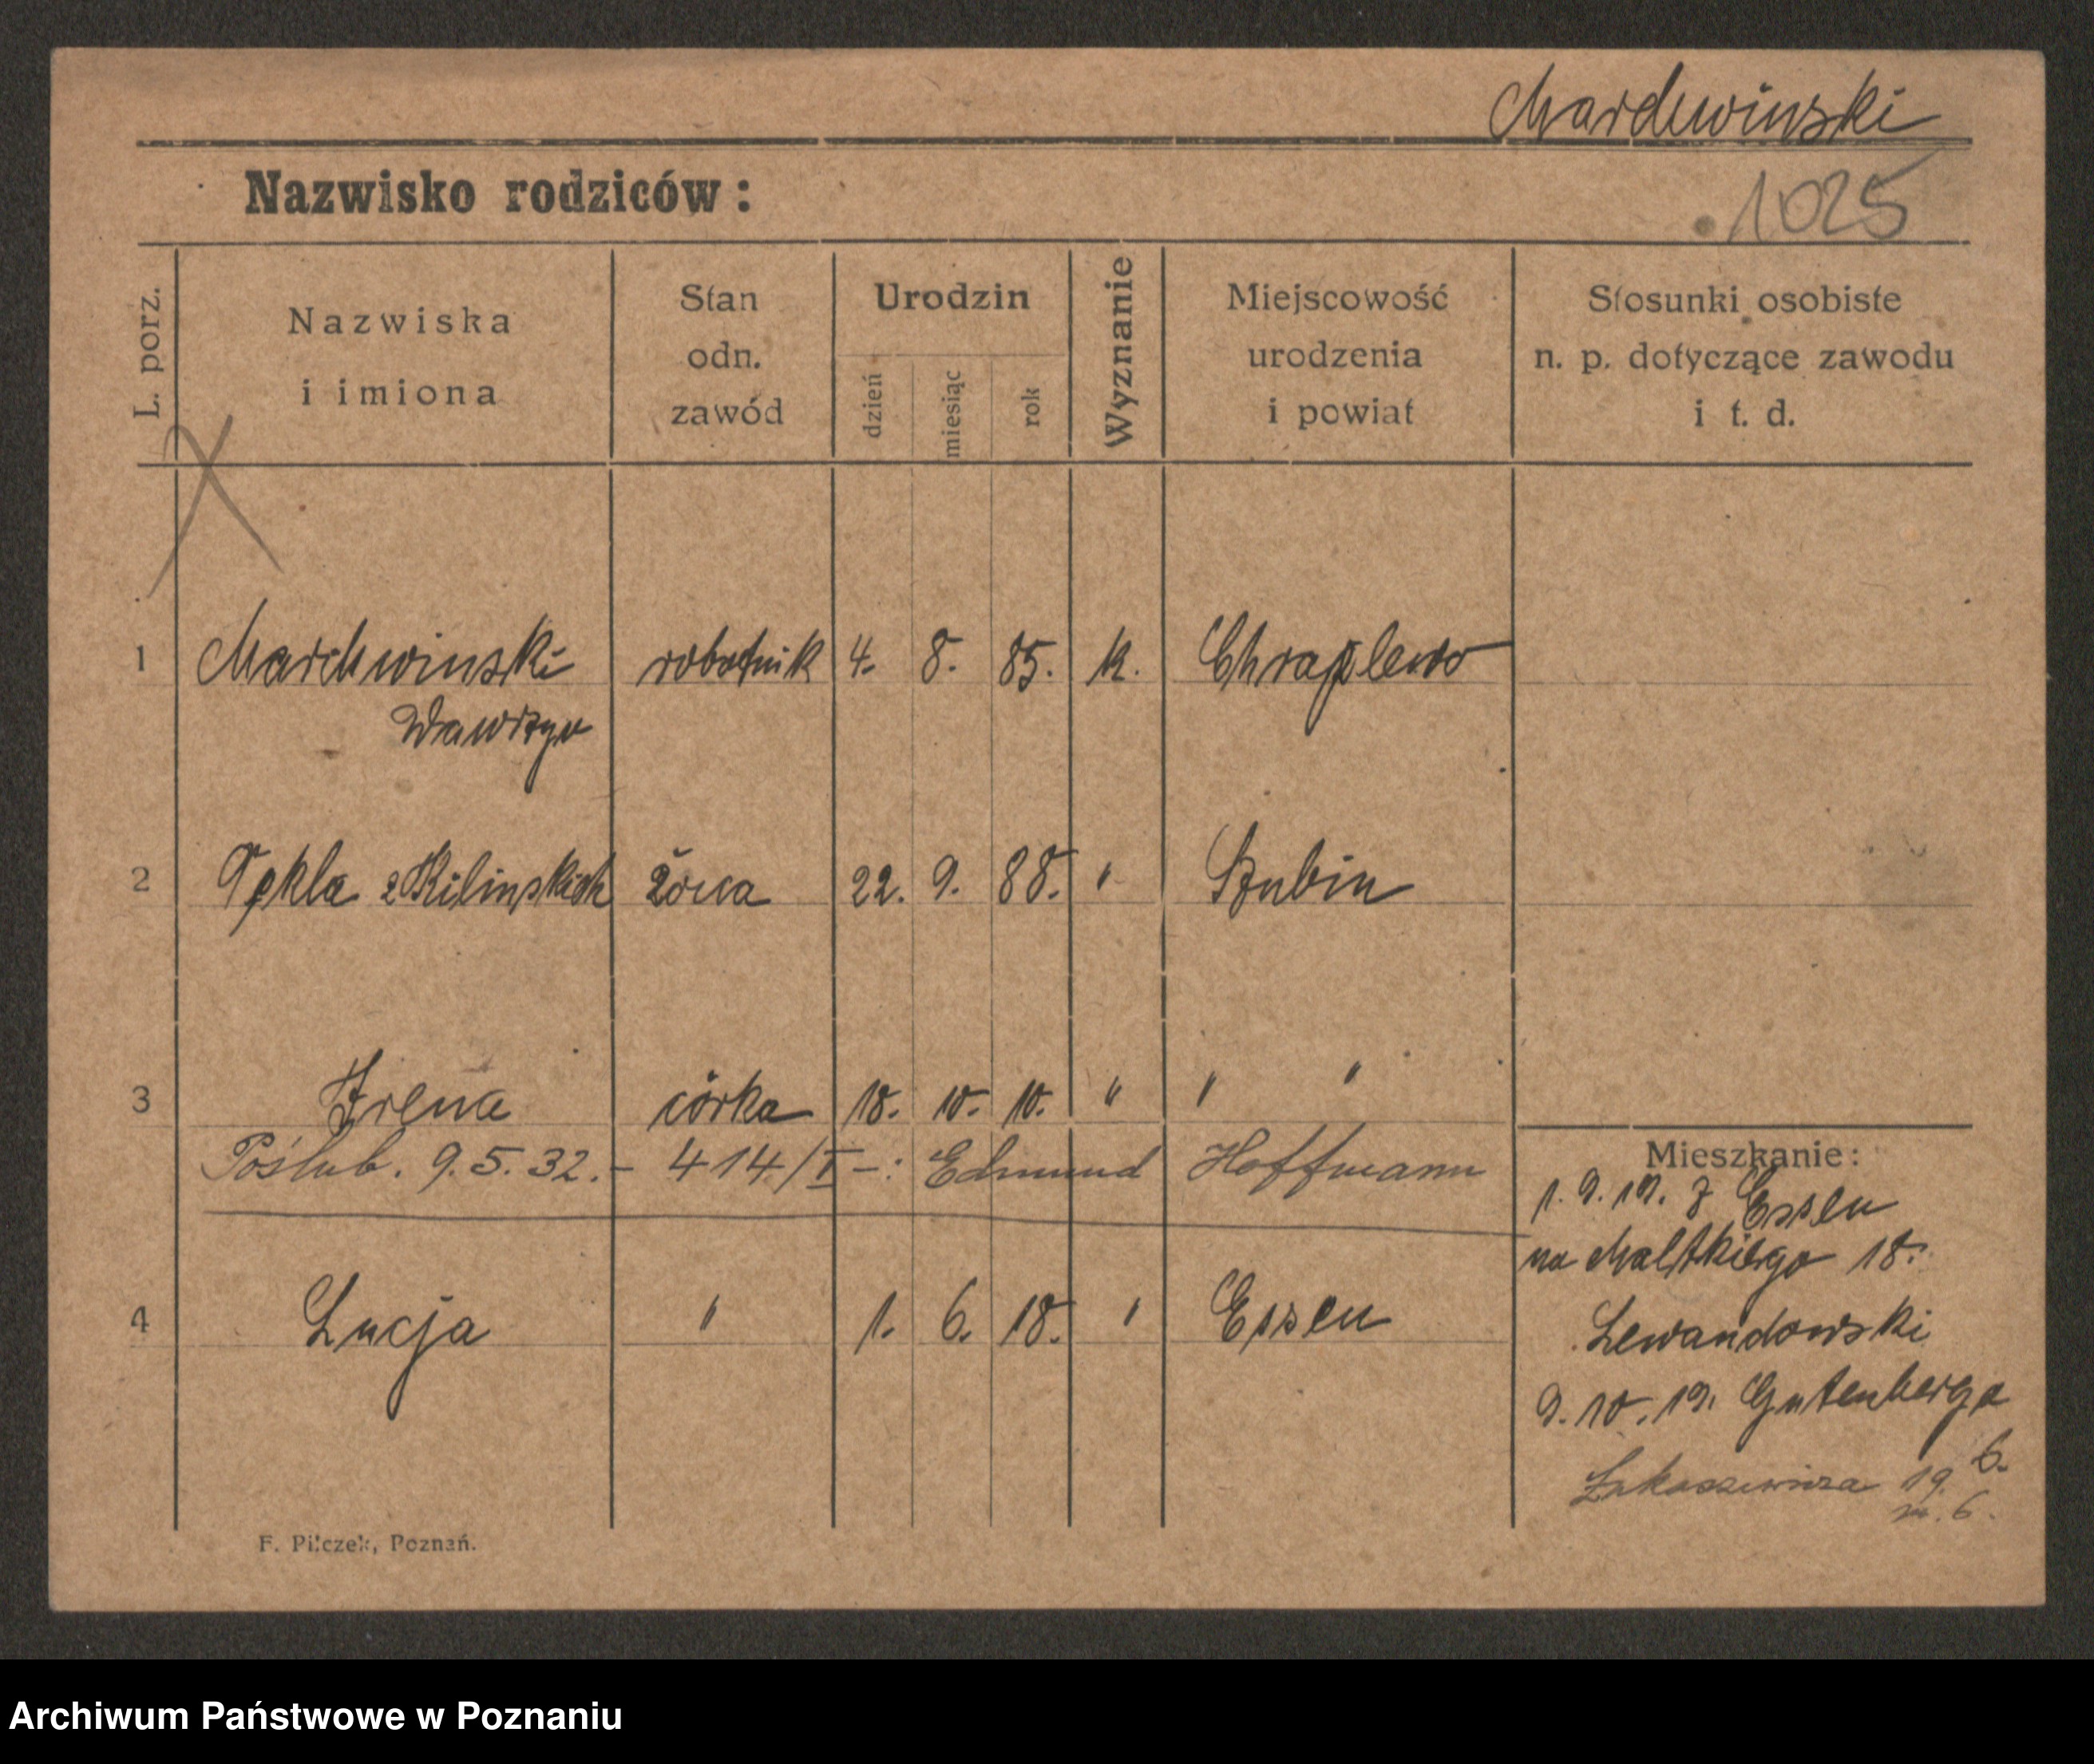 Marchwinski
Nazwisko rodziców:
1025
L. porz.
Nazwiska
i imiona
Stan
odn.
zawód
Urodzin
dzień
miesiąc
rok
Wyznanie
Miejscowość
urodzenia
i powiat
Stosunki osobiste
n. p. dotyczące zawodu
i t. d.
1 Marchwinski robotnik 4. 8. 85. k. Chraplewo
Wawrzyn
2 Tekla z Kilinskich żona 22. 9. 88. " Szubin
3 Irena córka 18. 10. 10. " " "
Poślub. 9.5.32.- 414/I -: Edmund Hoffmann
4 Lucja " 1. 6. 18. " Essen
Mieszkanie:
1. 9. 19. z Essen
na Maltkiego 18.
Lewandowski
9. 10. 19. Gutenberga
6.
Łukaszewicza 19.
m. 6.
F. Pilczek, Poznań.
Archiwum Państwowe w Poznaniu